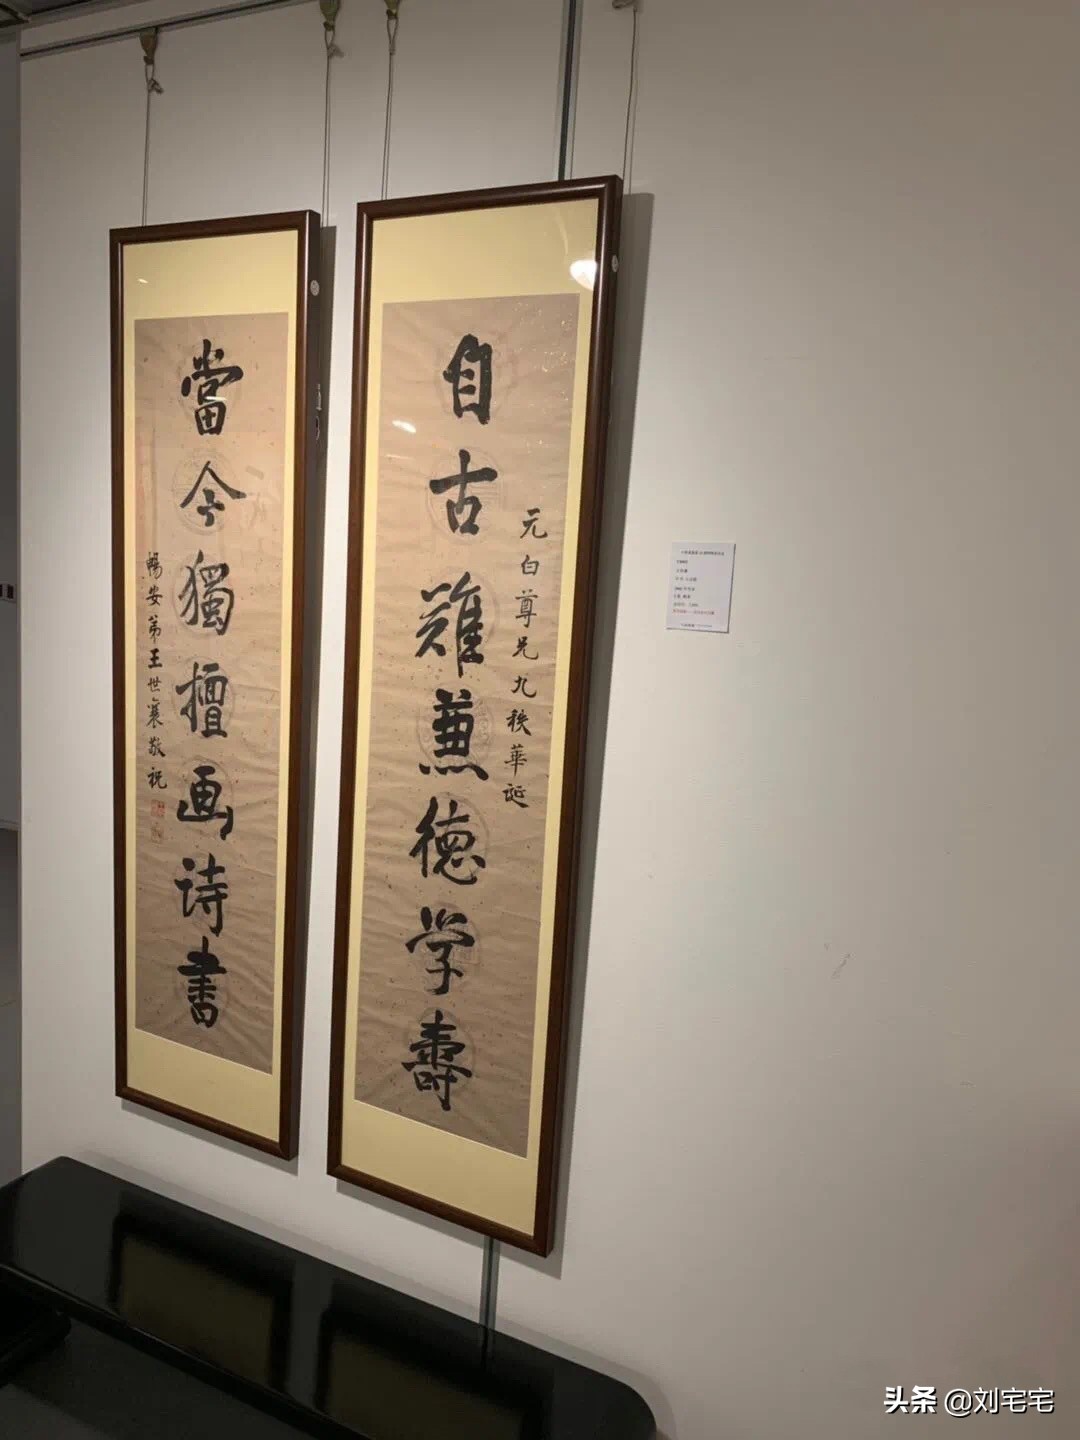 自古難兼德学壽
元白尊兄九秩華誕
當今獨擅画诗書
暢安弟王世襄敬祝
头条 @刘宅宅